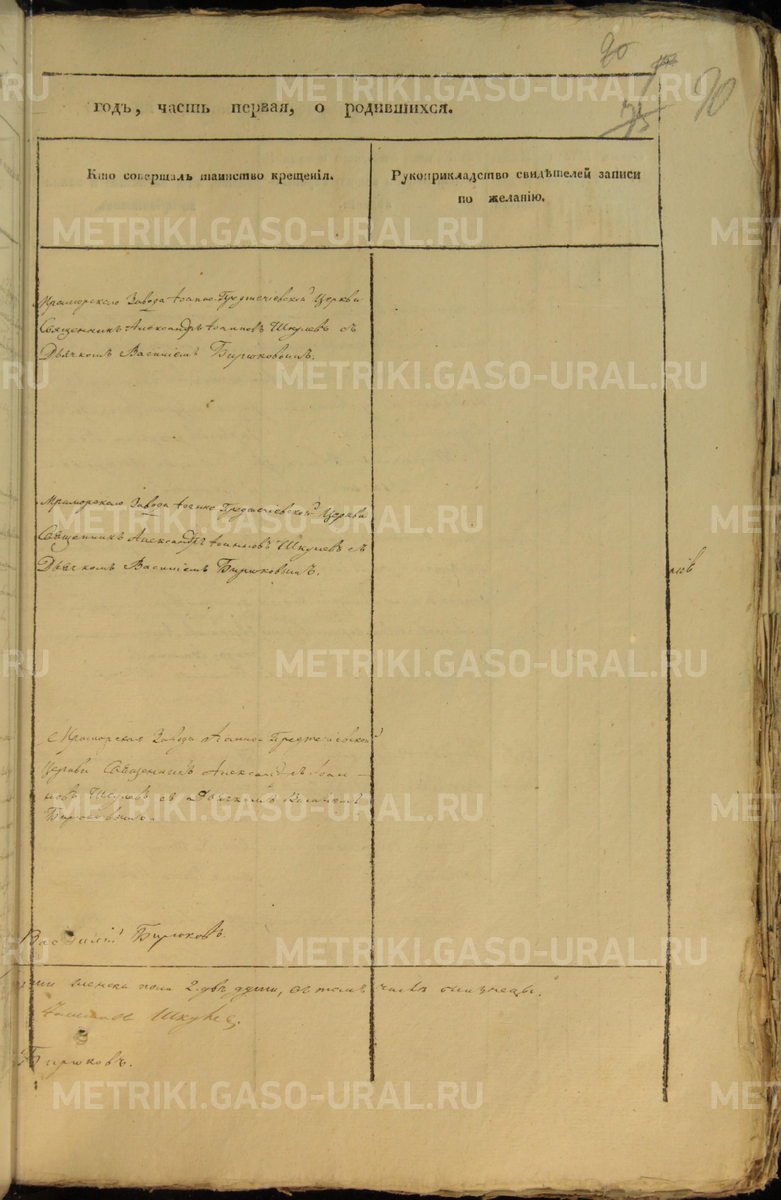 90
70
75
годъ, часть первая, о родившихся.
Кто совершалъ таинство крещенія.
Рукоприкладство свидѣтелей записи
по желанію.
Мраморскаго Завода Іоанно-Предтечіевской Церкви
Священникъ Александръ Іоанновъ Шкулевъ съ
Дьячкомъ Василіемъ Бирюковымъ.
Мраморскаго Завода Іоанно Предтечіевской Церкви
Священникъ Александръ Іоанновъ Шкулевъ съ
Дьячкомъ Василіемъ Бирюковымъ.
Мраморскаго Завода Іоанно Предтечіевской
Церкви Священникъ Александръ Іоан-
новъ Шкулевъ съ Дьячкомъ Василіемъ
Бирюковымъ.
Василій Бирюковъ.
женска пола 2 двѣ души, въ томъ числѣ
Шкулев
Бирюковъ.
METRIKI.GASO-URAL.RU